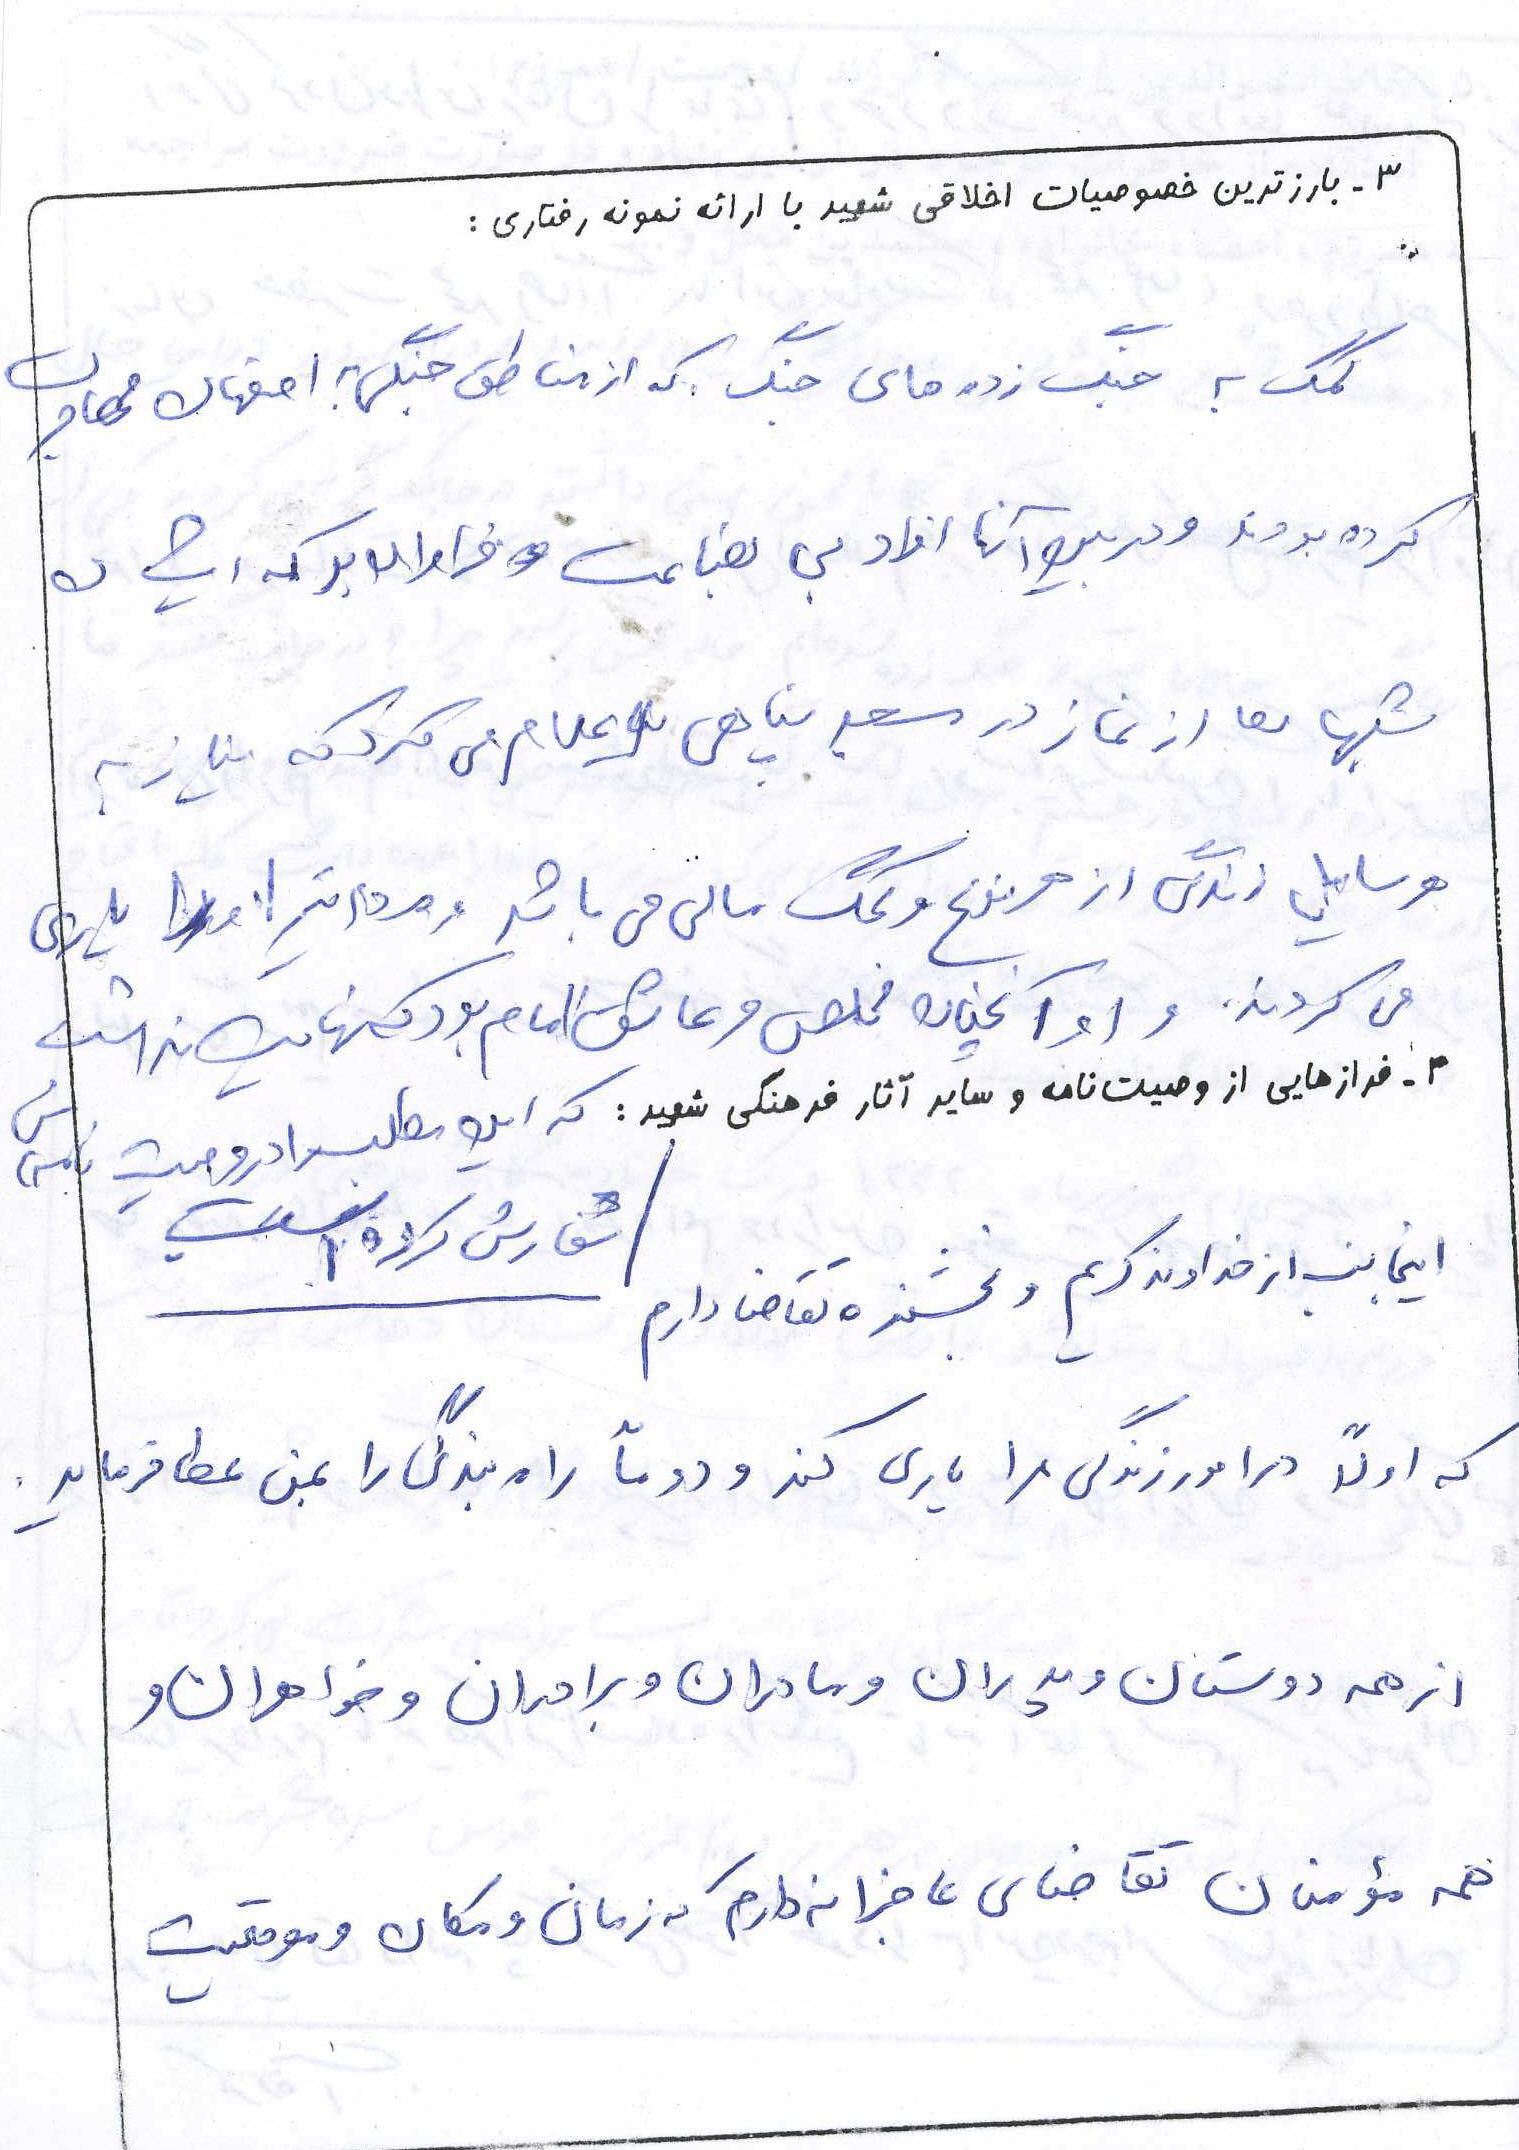 ۳ـ بارزترین خصوصیات اخلاقی شهید با ارائه نمونه رفتاری :
کمک به جنگ زده های جنگ که از مناطق جنگی به اصفهان مهاجرت
کرده بودند و در بین آنها افراد بی بضاعت فراوان بود که ایشان
شبها بعد از نماز در مسجد اعلام می کرد که نیاز به
وسایل زندگی از هر نوع و کمک مالی می باشد و مردم نیز او را یاری
می کردند. و او آنچنان مخلص و عاشق امام بود که نهایت نداشت
۴ـ فرازهایی از وصیت‌نامه و سایر آثار فرهنگی شهید :
که این مطلب را در وصیت نامه‌اش
سفارش کرده است
اینجانب از خداوند کریم و بخشنده تقاضا دارم
که اولاً در امور زندگی مرا یاری کند و دوماً راه بندگی را بمن عطا فرماید.
از همه دوستان و پدران و مادران و برادران و خواهران و
همه مؤمنان تقاضای عاجزانه دارم که زمان و مکان و موقعیت